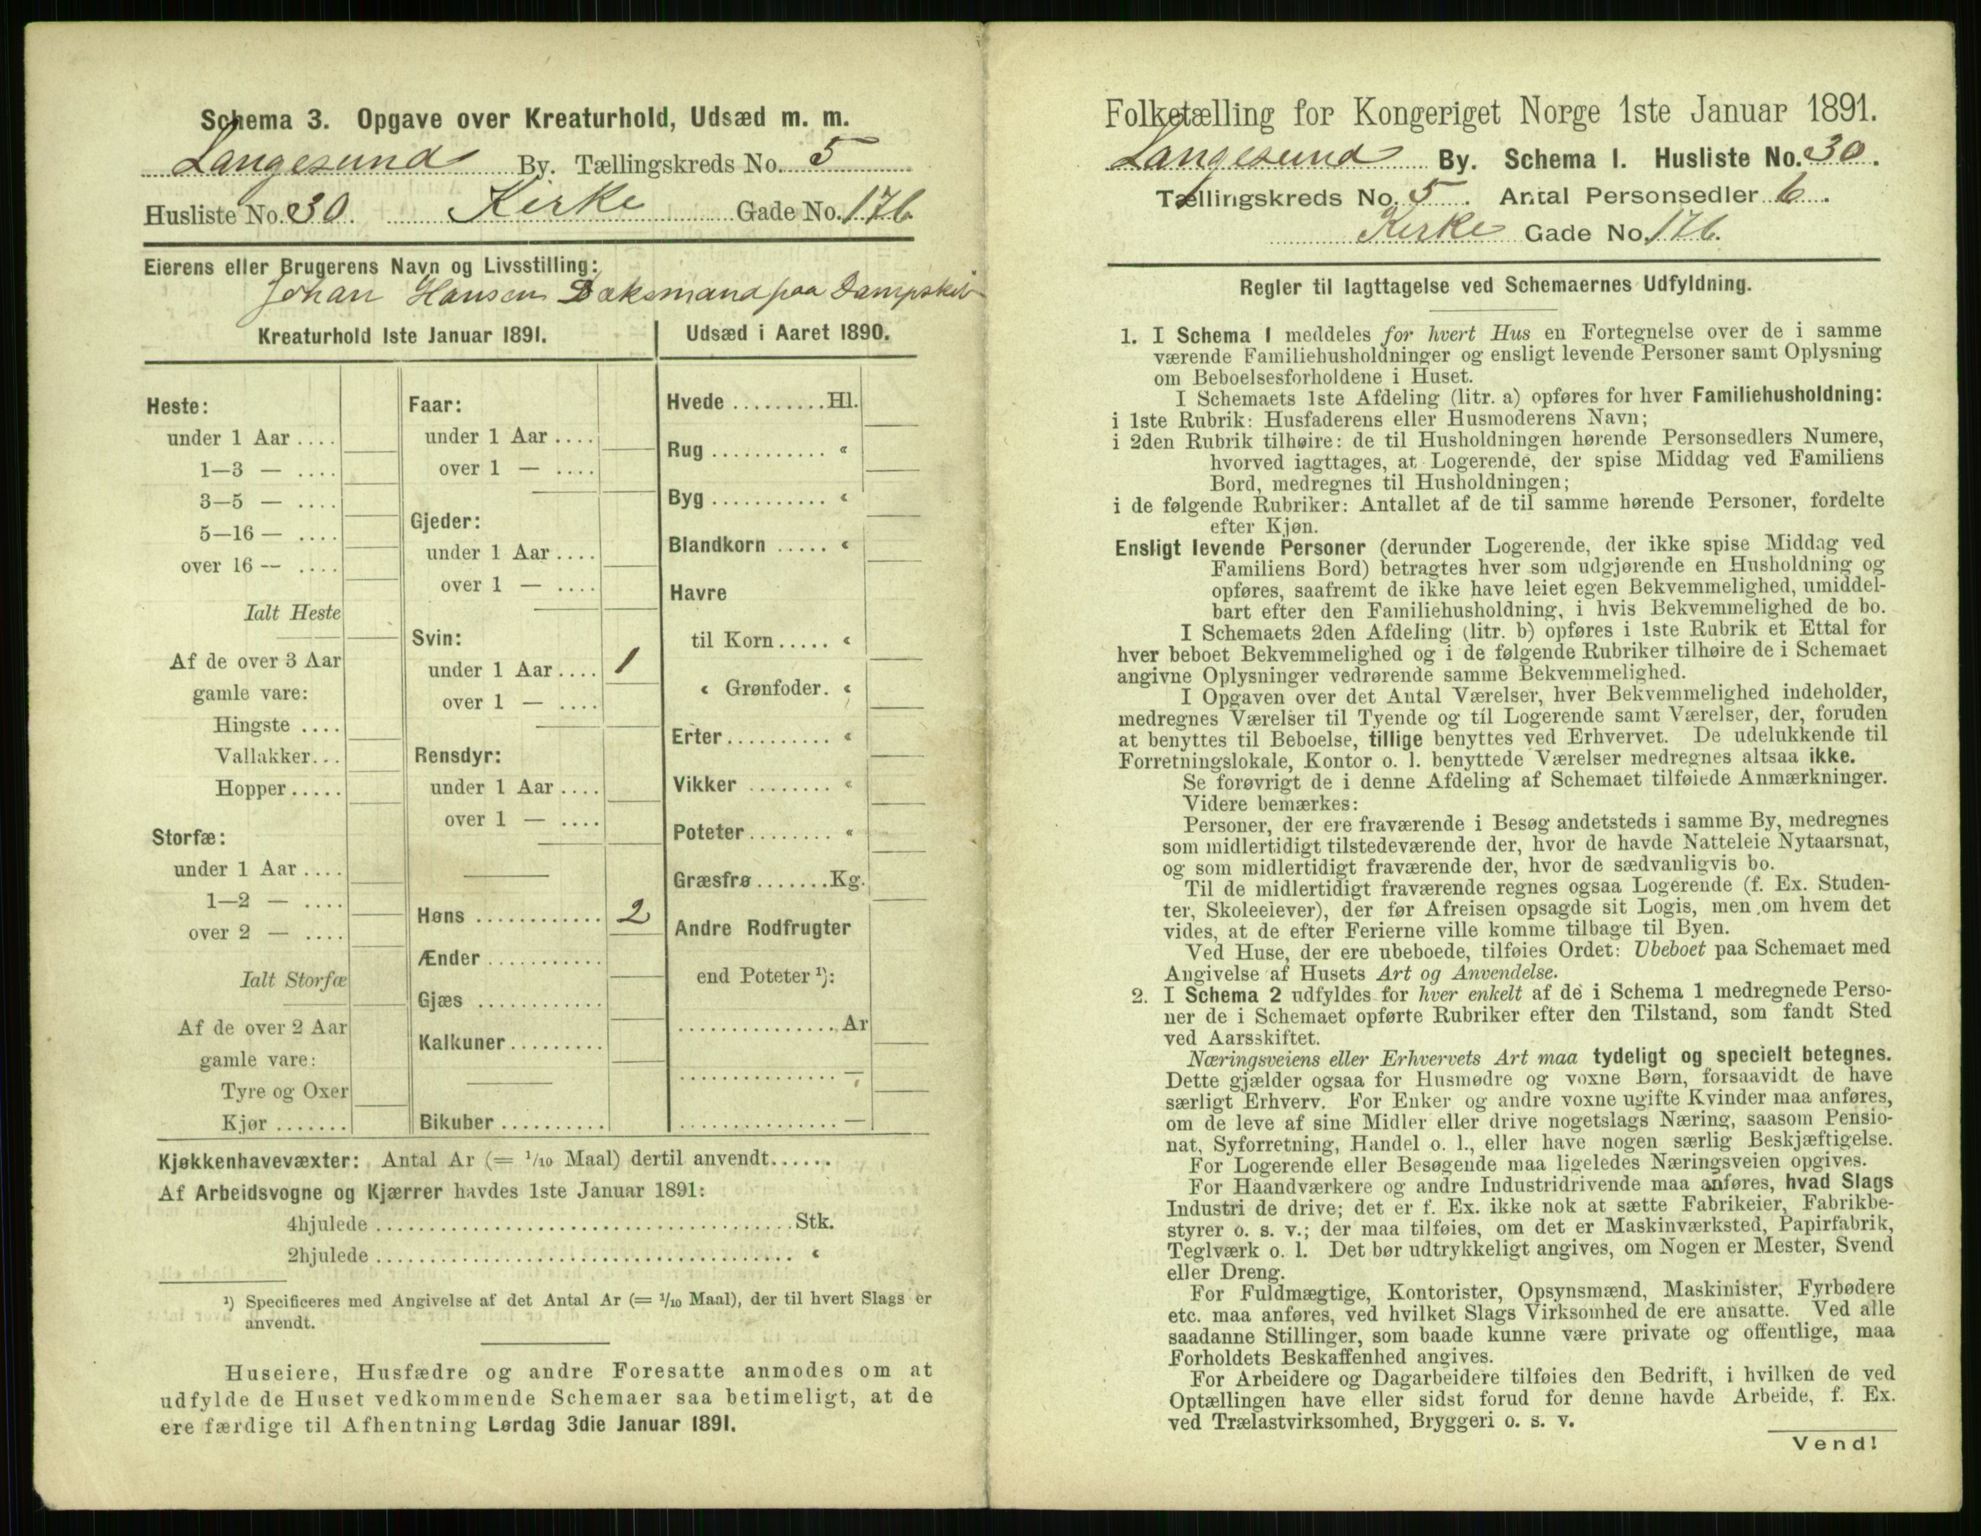 Schema 3. Opgave over Kreaturhold, Udsæd m. m.
Langesund By. Tællingskreds No. 5
Husliste No. 30. Kirke Gade No. 176
Eierens eller Brugerens Navn og Livsstilling:
Johan Hansen Dæksmand paa Dampskib
Kreaturhold 1ste Januar 1891.
Heste:
under 1 Aar ....
1—3 — ....
3—5 — ....
5—16 — ....
over 16 — ....
Ialt Heste
Af de over 3 Aar
gamle vare:
Hingste ....
Vallakker...
Hopper .....
Storfæ:
under 1 Aar ....
1—2 — ....
over 2 — ....
Ialt Storfæ
Af de over 2 Aar
gamle vare:
Tyre og Oxer
Kjør .......
Faar:
under 1 Aar ....
over 1 — ....
Gjeder:
under 1 Aar ....
over 1 — ....
Svin:
under 1 Aar .... 1
over 1 — ....
Rensdyr:
under 1 Aar ....
over 1 — ....
Høns ............ 2
Ænder ...........
Gjæs ............
Kalkuner .........
Bikuber ..........
Udsæd i Aaret 1890.
Hvede .........Hl.
Rug ........... "
Byg ........... "
Blandkorn ..... "
Havre
til Korn ..... "
" Grønfoder. "
Erter .......... "
Vikker ........ "
Poteter ........ "
Græsfrø .......Kg.
Andre Rodfrugter
end Poteter ¹):
...............Ar
............... —
............... —
Kjøkkenhavevæxter: Antal Ar (= 1/10 Maal) dertil anvendt......
Af Arbeidsvogne og Kjærrer havdes 1ste Januar 1891:
4hjulede ........................................Stk.
2hjulede ........................................ "
¹) Specificeres med Angivelse af det Antal Ar (= 1/10 Maal), der til hvert Slags er
anvendt.
Huseiere, Husfædre og andre Foresatte anmodes om at
udfylde de Huset vedkommende Schemaer saa betimeligt, at de
ere færdige til Afhentning Lørdag 3die Januar 1891.
Folketælling for Kongeriget Norge 1ste Januar 1891.
Langesund By. Schema 1. Husliste No. 30.
Tællingskreds No. 5. Antal Personsedler 6.
Kirke Gade No. 176.
Regler til Iagttagelse ved Schemaernes Udfyldning.
1. I Schema 1 meddeles for hvert Hus en Fortegnelse over de i samme
værende Familiehusholdninger og ensligt levende Personer samt Oplysning
om Beboelsesforholdene i Huset.
I Schemaets 1ste Afdeling (litr. a) opføres for hver Familiehusholdning:
i 1ste Rubrik: Husfaderens eller Husmoderens Navn;
i 2den Rubrik tilhøire: de til Husholdningen hørende Personsedlers Numere,
hvorved iagttages, at Logerende, der spise Middag ved Familiens
Bord, medregnes til Husholdningen;
i de følgende Rubriker: Antallet af de til samme hørende Personer, fordelte
efter Kjøn.
Ensligt levende Personer (derunder Logerende, der ikke spise Middag ved
Familiens Bord) betragtes hver som udgjørende en Husholdning og
opføres, saafremt de ikke have leiet egen Bekvemmelighed, umiddel-
bart efter den Familiehusholdning, i hvis Bekvemmelighed de bo.
I Schemaets 2den Afdeling (litr. b) opføres i 1ste Rubrik et Ettal for
hver beboet Bekvemmelighed og i de følgende Rubriker tilhøire de i Schemaet
angivne Oplysninger vedrørende samme Bekvemmelighed.
I Opgaven over det Antal Værelser, hver Bekvemmelighed indeholder,
medregnes Værelser til Tyende og til Logerende samt Værelser, der, foruden
at benyttes til Beboelse, tillige benyttes ved Erhvervet. De udelukkende til
Forretningslokale, Kontor o. l. benyttede Værelser medregnes altsaa ikke.
Se forøvrigt de i denne Afdeling af Schemaet tilføiede Anmærkninger.
Videre bemærkes:
Personer, der ere fraværende i Besøg andetsteds i samme By, medregnes
som midlertidigt tilstedeværende der, hvor de havde Natteleie Nytaarsnat,
og som midlertidigt fraværende der, hvor de sædvanligvis bo.
Til de midlertidigt fraværende regnes ogsaa Logerende (f. Ex. Studen-
ter, Skoleelever), der før Afreisen opsagde sit Logis, men om hvem det
vides, at de efter Ferierne ville komme tilbage til Byen.
Ved Huse, der ere ubeboede, tilføies Ordet: Ubeboet paa Schemaet med
Angivelse af Husets Art og Anvendelse.
2. I Schema 2 udfyldes for hver enkelt af de i Schema 1 medregnede Perso-
ner de i Schemaet opførte Rubriker efter den Tilstand, som fandt Sted
ved Aarsskiftet.
Næringsveiens eller Erhvervets Art maa tydeligt og specielt betegnes.
Dette gjælder ogsaa for Husmødre og voxne Børn, forsaavidt de have
særligt Erhverv. For Enker og andre voxne ugifte Kvinder maa anføres,
om de leve af sine Midler eller drive nogetslags Næring, saasom Pensio-
nat, Syforretning, Handel o. l., eller have nogen særlig Beskjæftigelse.
For Logerende eller Besøgende maa ligeledes Næringsveien opgives.
For Haandværkere og andre Industridrivende maa anføres, hvad Slags
Industri de drive; det er f. Ex. ikke nok at sætte Fabrikeier, Fabrikbe-
styrer o. s. v.; der maa tilføies, om det er Maskinværksted, Papirfabrik,
Teglværk o. l. Det bør udtrykkeligt angives, om Nogen er Mester, Svend
eller Dreng.
For Fuldmægtige, Kontorister, Opsynsmænd, Maskinister, Fyrbødere
etc. maa anføres, ved hvilket Slags Virksomhed de ere ansatte. Ved alle
saadanne Stillinger, som baade kunne være private og offentlige, maa
Forholdets Beskaffenhed angives.
For Arbeidere og Dagarbeidere tilføies den Bedrift, i hvilken de ved
Optællingen have eller sidst forud for denne havde Arbeide, f. Ex.
ved Trælastvirksomhed, Bryggeri o. s. v.
Vend!